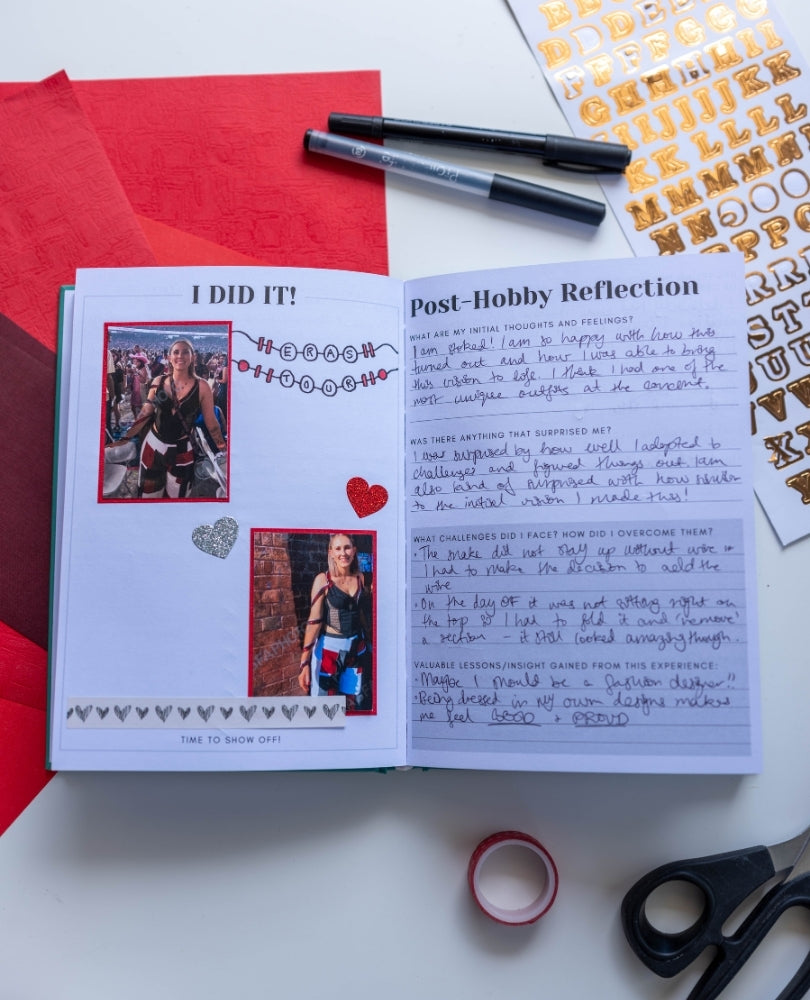 I DID IT!
ERAS
TOUR
TIME TO SHOW OFF!
Post-Hobby Reflection
WHAT ARE MY INITIAL THOUGHTS AND FEELINGS?
I am stoked! I am so happy with how this
turned out and how I was able to bring
this vision to life. I think I had one of the
most unique outfits at the concert.
WAS THERE ANYTHING THAT SURPRISED ME?
I was surprised by how well I adapted to
challenges and figured things out. I am
also kind of surprised with how similar
to the initial vision I made this!
WHAT CHALLENGES DID I FACE? HOW DID I OVERCOME THEM?
• The snake did not stay up without wire so
I had to make the decision to add the
wire
• On the day OF it was not sitting right on
the top so I had to fold it and 'remove'
a section - it still looked amazing though.
VALUABLE LESSONS/INSIGHT GAINED FROM THIS EXPERIENCE:
• Maybe I should be a fashion designer!!
• Being dressed in my own designs makes
me feel GOOD + PROUD